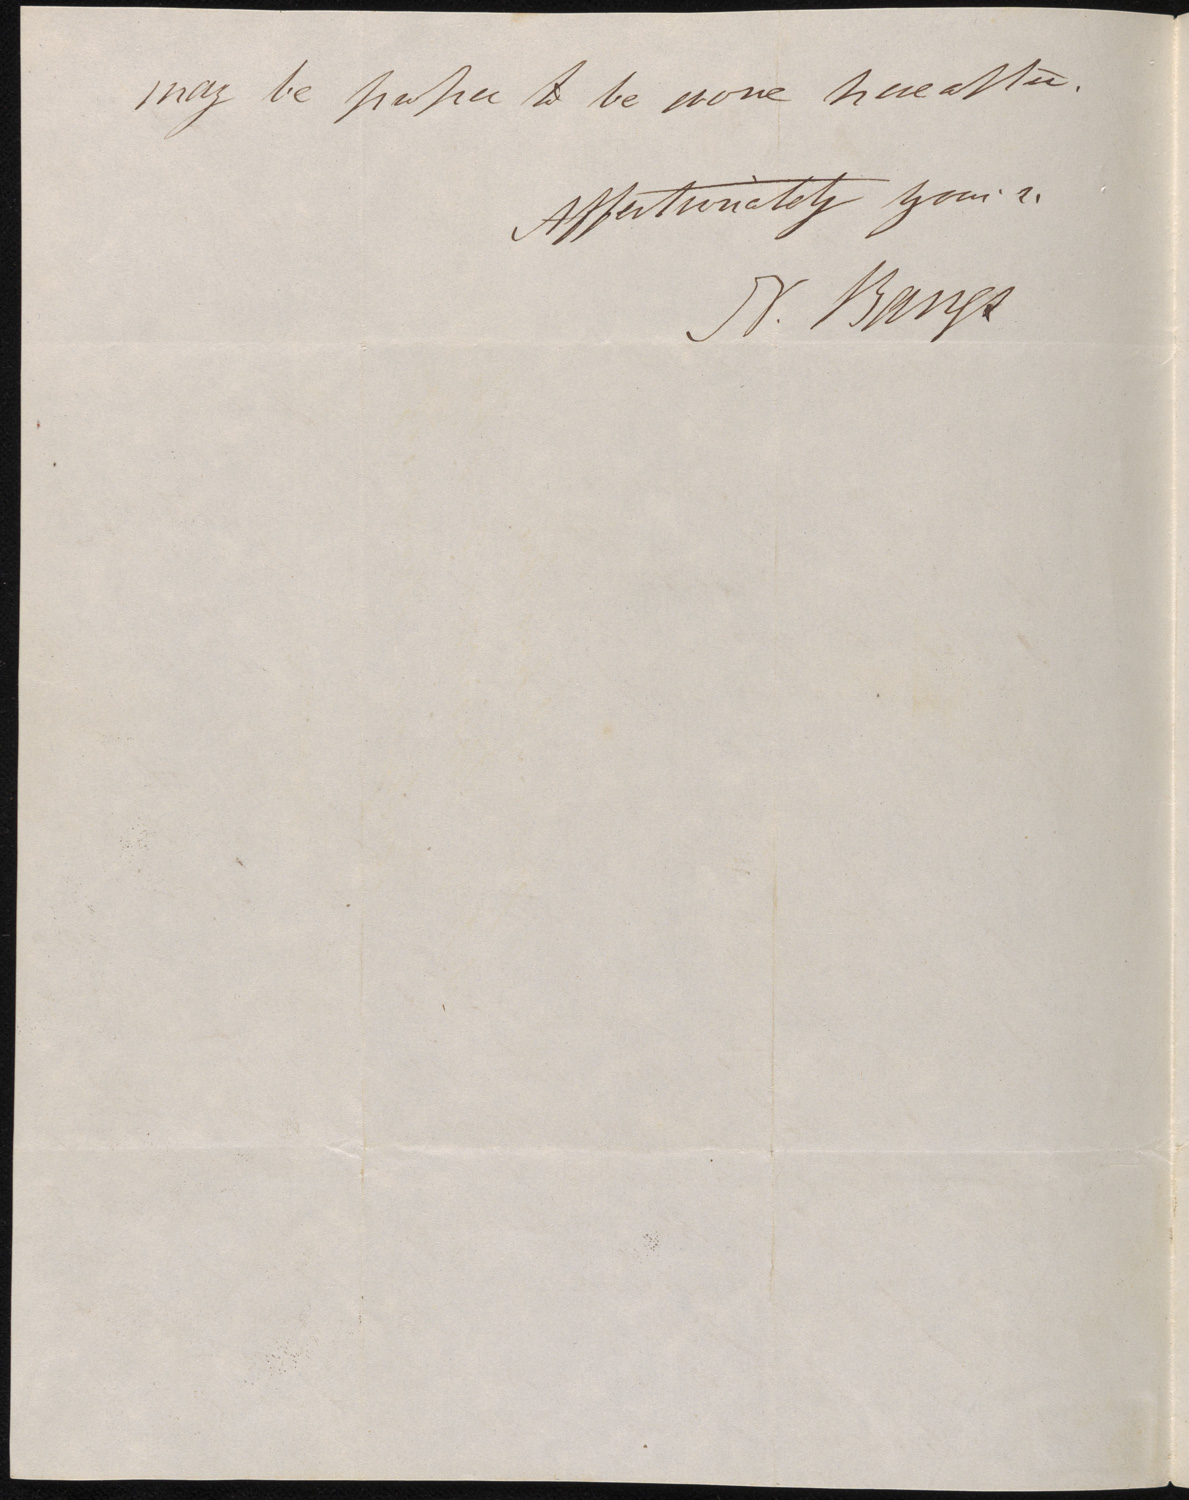 may be proper to be done hereafter.
Affectionately yours.
N. Bangs